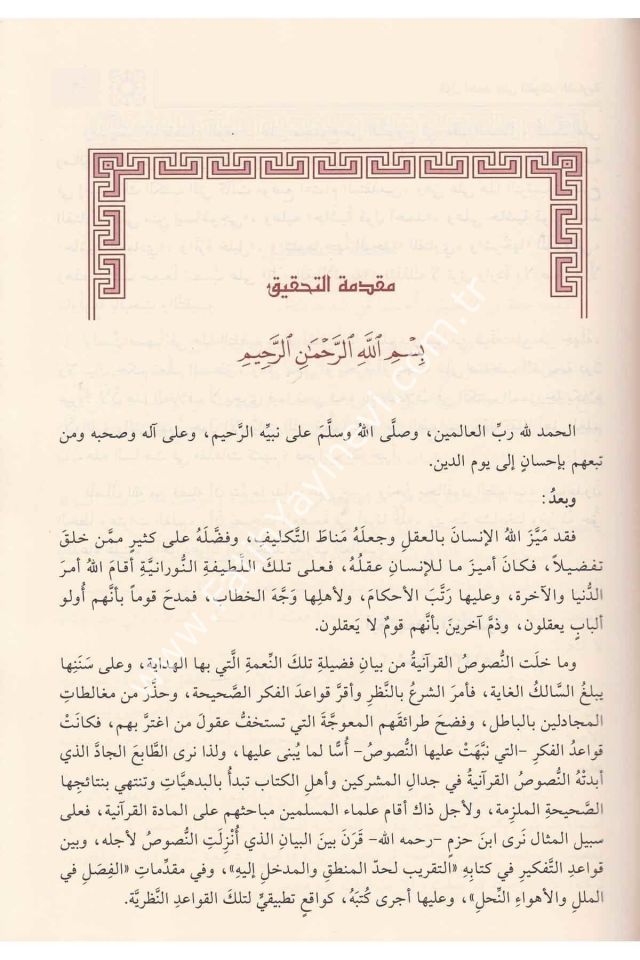 مقدمة التحقيق
بِسْمِ ٱللَّهِ ٱلرَّحْمَٰنِ ٱلرَّحِيمِ
الحمد لله ربِّ العالمين، وصلَّى اللهُ وسلَّمَ على نبيِّه الرَّحيم، وعلى آله وصحبه ومن
تبعهم بإحسانٍ إلى يوم الدين.
وبعدُ:
فقد مَيَّزَ اللهُ الإنسانَ بالعقلِ وجعلَهُ مَناطَ التَّكليفِ، وفضَّلَهُ على كثيرٍ ممَّن خلقَ
تفضيلاً، فكانَ أميزَ ما للإنسانِ عقلُهُ، فعلى تلكَ اللَّطيفةِ النُّورانيَّةِ أقامَ اللهُ أمرَ
الدُّنيا والآخرة، وعليها رَتَّبَ الأحكامَ، ولأهلِها وَجَّهَ الخطاب، فمدحَ قوماً بأنَّهم أُولو
ألبابٍ يعقلون، وذمَّ آخرينَ بأنَّهم قومٌ لا يَعقلون.
وما خلَت النُّصوصُ القرآنيةُ من بيانِ فضيلةِ تلكَ النِّعمةِ الَّتي بها الهداية، وعلى سَنَنِها
يبلغُ السَّالكُ الغاية، فأمرَ الشرعُ بالنَّظرِ وأقرَّ قواعدَ الفكر الصَّحيحة، وحذَّرَ من مغالطاتِ
المجادلين بالباطل، وفضحَ طرائقَهم المعوجَّةَ التي تستخفُّ عقولَ من اغترَّ بهم، فكانَتْ
قواعدُ الفكرِ -التي نبَّهَتْ عليها النُّصوصُ- أُسًّا لما يُبنى عليها، ولذا نرى الطَّابعَ الجادَّ الذي
أبدتْهُ النُّصوصُ القرآنيةُ في جدالِ المشركين وأهلِ الكتاب تبدأُ بالبدهيَّاتِ وتنتهي بنتائجِها
الصَّحيحةِ الملزِمة، ولأجلِ ذاك أقام علماء المسلمين مباحثهم على المادة القرآنية، فعلى
سبيل المثال نَرى ابنَ حزمٍ -رحمه الله- قَرَنَ بينَ البيانِ الذي أُنْزِلَتِ النُّصوصُ لأجله، وبين
قواعدِ التَّفكيرِ في كتابِهِ «التقريب لحدّ المنطق والمدخل إليه»، وفي مقدِّماتِ «الفِصَل في
الملل والأهواء النِّحل»، وعليها أجرى كُتبَهُ، كواقعٍ تطبيقيٍّ لتلكَ القواعدِ النَّظريَّة.